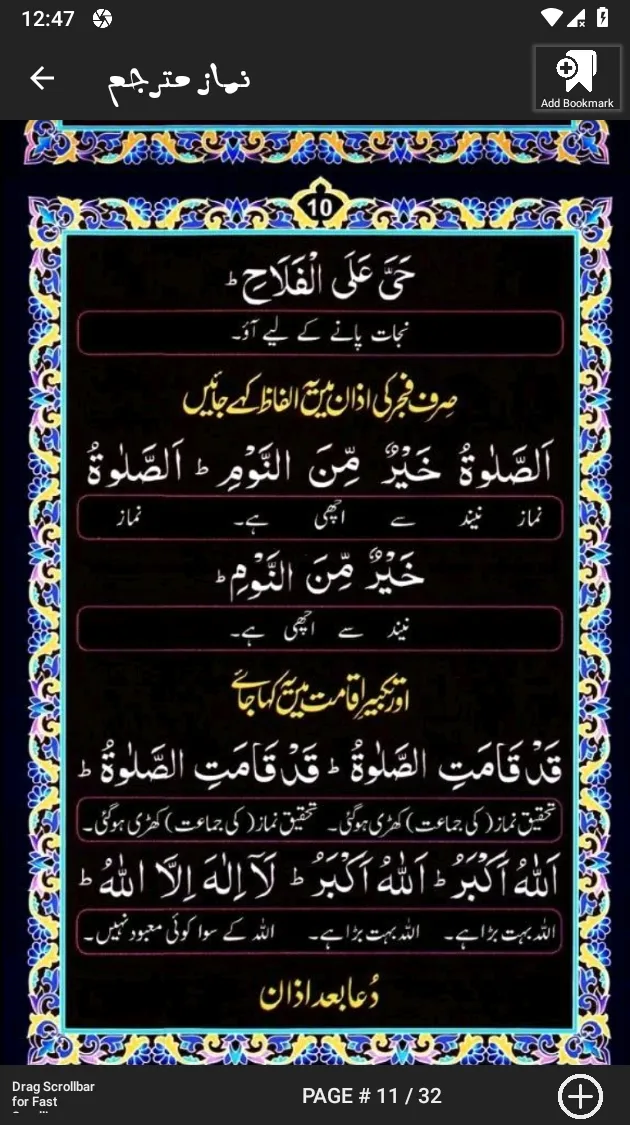 12:47
نماز مترجم
Add Bookmark
10
حَیَّ عَلَی الْفَلَاحِ ؕ
نجات پانے کے لیے آؤ۔
صرف فجر کی اذان میں یہ الفاظ کہے جائیں
اَلصَّلٰوةُ خَیْرٌ مِّنَ النَّوْمِ ؕ اَلصَّلٰوةُ
نماز نیند سے اچھی ہے۔ نماز
خَیْرٌ مِّنَ النَّوْمِ ؕ
نیند سے اچھی ہے۔
اور تکبیرِ اقامت میں یہ کہا جائے
قَدْ قَامَتِ الصَّلٰوةُ ؕ قَدْ قَامَتِ الصَّلٰوةُ ؕ
تحقیق نماز (کی جماعت) کھڑی ہوگئی۔ تحقیق نماز (کی جماعت) کھڑی ہوگئی۔
اَللّٰهُ اَکْبَرُ ؕ اَللّٰهُ اَکْبَرُ ؕ لَآ اِلٰهَ اِلَّا اللّٰهُ ؕ
اللہ بہت بڑا ہے۔ اللہ بہت بڑا ہے۔ اللہ کے سوا کوئی معبود نہیں۔
دُعا بعد اذان
Drag Scrollbar
for Fast
PAGE # 11 / 32